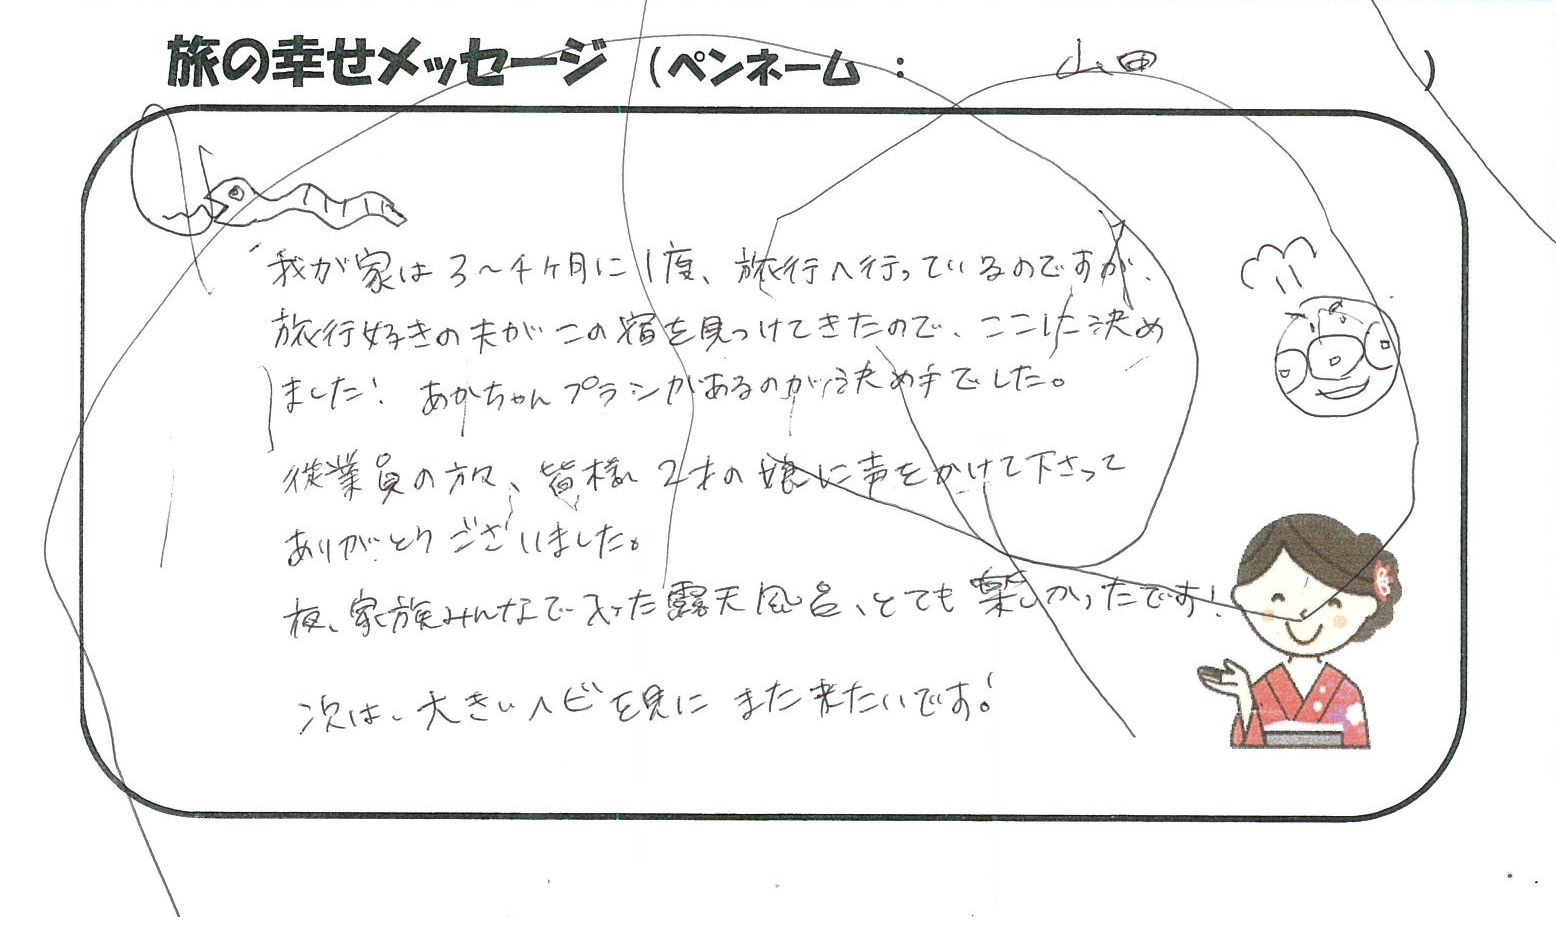 旅の幸せメッセージ (ペンネーム : 山田 )
我が家は3〜4ヶ月に1度、旅行へ行っているのですが、
旅行好きの夫がこの宿を見つけてきたので、ここに決め
ました! あかちゃんプランがあるのが決め手でした。
従業員の方々、皆様 2才の娘に声をかけて下さって
ありがとうございました。
夜、家族みんなで入った露天風呂、とても楽しかったです!
次は、大きいヘビを見に また来たいです!